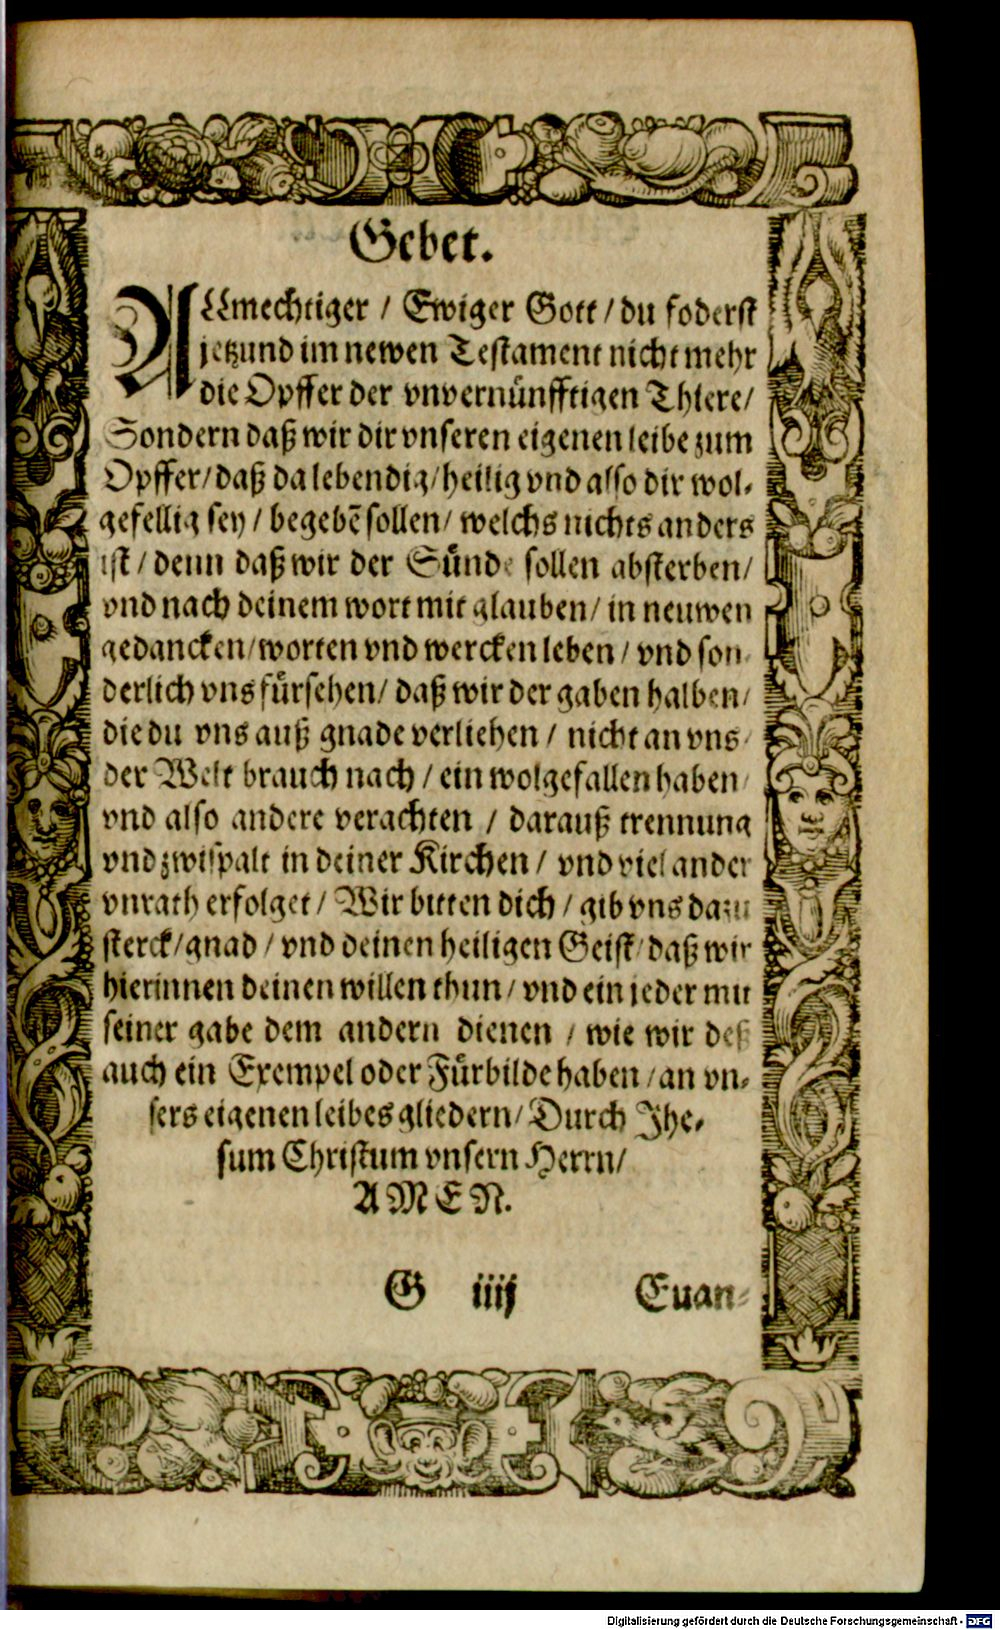 Gebet.
ALlmechtiger / Ewiger Gott / du foderst
jetzund im newen Testament nicht mehr
die Opffer der vnvernünfftigen Thiere /
Sondern daß wir dir vnseren eigenen leibe zum
Opffer / daß da lebendig / heilig vnd also dir wol-
gefellig sey / begebē sollen / welchs nichts anders
ist / denn daß wir der Sünde sollen absterben /
vnd nach deinem wort mit glauben / in neuwen
gedancken / worten vnd wercken leben / vnd son-
derlich vns fürsehen / daß wir der gaben halben /
die du vns auß gnade verliehen / nicht an vns /
der Welt brauch nach / ein wolgefallen haben /
vnd also andere verachten / darauß trennung
vnd zwispalt in deiner Kirchen / vnd viel ander
vnrath erfolget / Wir bitten dich / gib vns dazu
sterck / gnad / vnd deinen heiligen Geist / daß wir
hierinnen deinen willen thun / vnd ein jeder mit
seiner gabe dem andern dienen / wie wir deß
auch ein Exempel oder Fürbilde haben / an vn-
sers eigenen leibes gliedern / Durch Jhe-
sum Christum vnsern Herrn /
AMEN.
G iiij Euan-
Digitalisierung gefördert durch die Deutsche Forschungsgemeinschaft - DFG